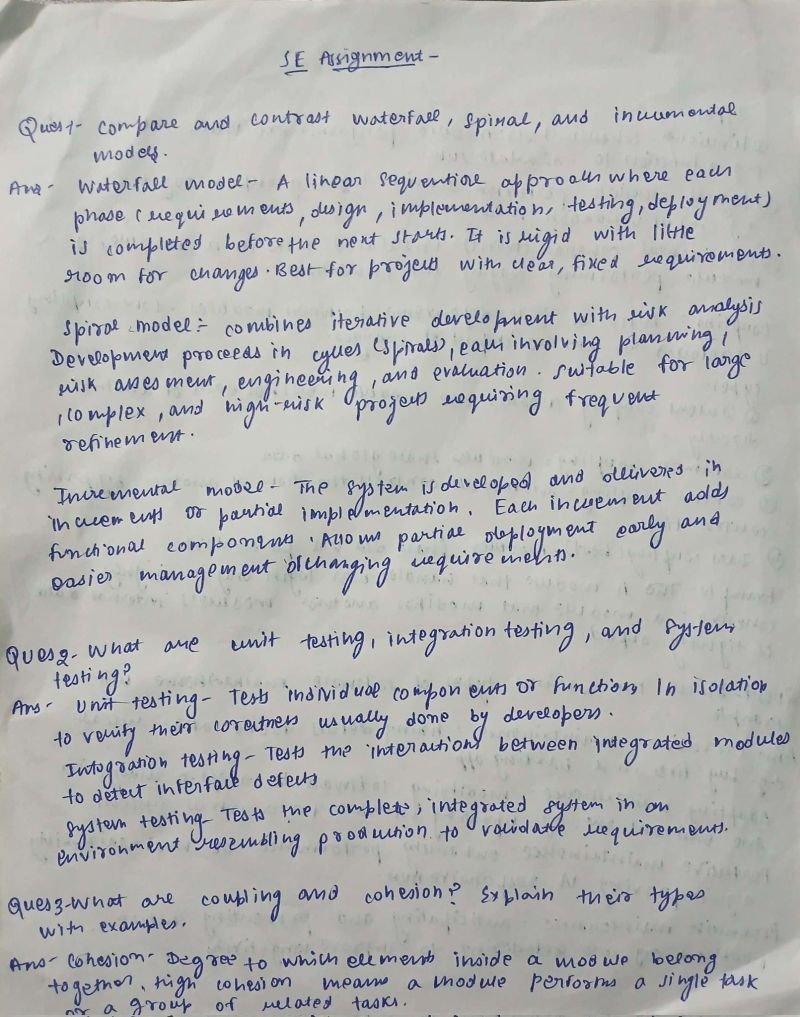 SE Assignment -
Ques1- Compare and contrast waterfall, spiral, and incremental
models.
Ans- Waterfall model - A linear sequential approach where each
phase (requirements, design, implementation, testing, deployment)
is completed before the next starts. It is rigid with little
room for changes. Best for projects with clear, fixed requirements.
Spiral model :- combines iterative development with risk analysis
Development proceeds in cycles (spirals), each involving planning,
risk assesment, engineering, and evaluation. suitable for large
, complex, and high-risk projects requiring frequent
refinement.
Incremental model - The system is developed and delivered in
increments or partial implementation. Each increment adds
functional components. Allows partial deployment early and
easier management of changing requirements.
Ques2- What are unit testing, integration testing, and system
testing?
Ans- Unit testing - Tests individual components or functions In isolation
to verify their corectness usually done by developers.
Intogration testing - Tests the interactions between integrated modules
to detect interface defects
System testing - Tests the complete, integrated system in an
environment resembling production to validate requirements.
Ques3- What are coupling and cohesion? Explain their types
with examples.
Ans- Cohesion - Degree to which elements inside a module belong
together. high cohesion means a module performs a single task
or a group of related tasks.